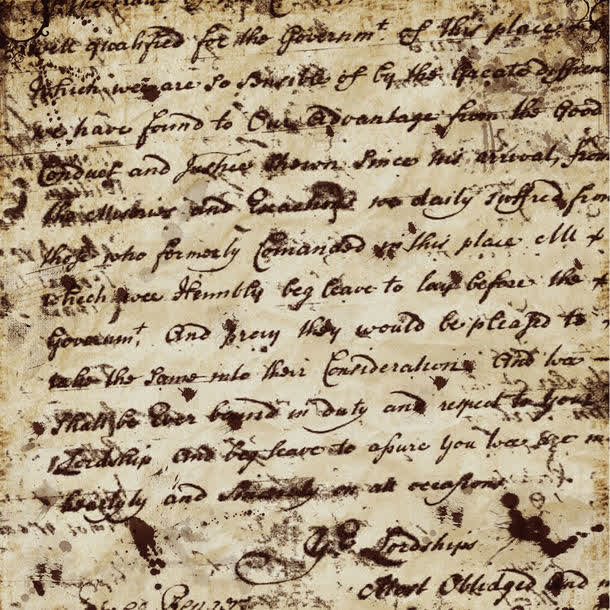 well qualified for the Governmt of this place
Which wee are so Sensible of by the Greate differen
we have found to Our Advantage from the Good
Conduct and Justice Shown Since his arrival, from
the Miseries and we daily suffred from
those who formerly Comanded in this place All
which wee Humbly beg leave to lay before the
Governmt, And pray they would be pleasd to
take the Same into their Consideration And wee
Shall be Ever bound in duty and respect to your
Lordship, And beg leave to assure You wee are
heartyly and Sincerely on all occasions
Yr Lordships
Most Obledged And